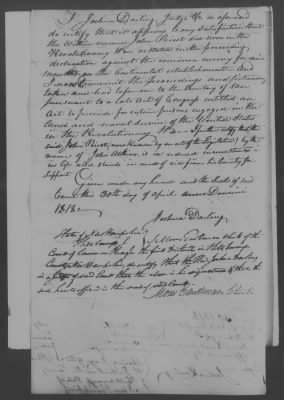 I Joshua Darling Judge &c as aforesaid
do certify that it appears to my satisfaction that
the within named John Thirst did serve in the
Revolutionary War as stated in the preceding
declaration against the common enemy for nine
months, on the Continental establishment And
I now transmit the proceedings and testimony
taken and had before me to the Secretary of War
pursuant to a late Act of Congress entitled an
Act to provide for certain persons engaged in the
land and naval service of the United States
in the Revolutionary War. I further certify that the
said John (now known by an act of the legislature) by the
name of John Atkins is in reduced circumstances
in life and stands in need of aid from his Country for
support
Given under my hand and the Seal of said
Court this 30th day of April anno Domini
1818
Joshua Darling
State of New Hampshire
Hillsborough
I Moses Eastman clerk of the
Court of Common Pleas for the first District in Hillsborough
County New Hampshire, do certify that the Hon. John Darling
is a of said Court that the above is his signature & that the
seal hereto affixed is the seal of said Court
Moses Eastman Clerk